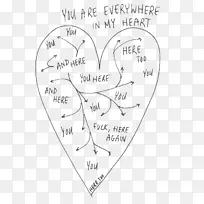 YOU ARE EVERYWHERE
IN MY HEART
YOU
YOU
HERE
TOO
YOU
AND HERE
YOU HERE
AND
HERE
YOU
YOU
YOU
FUCK, HERE
AGAIN
YOU